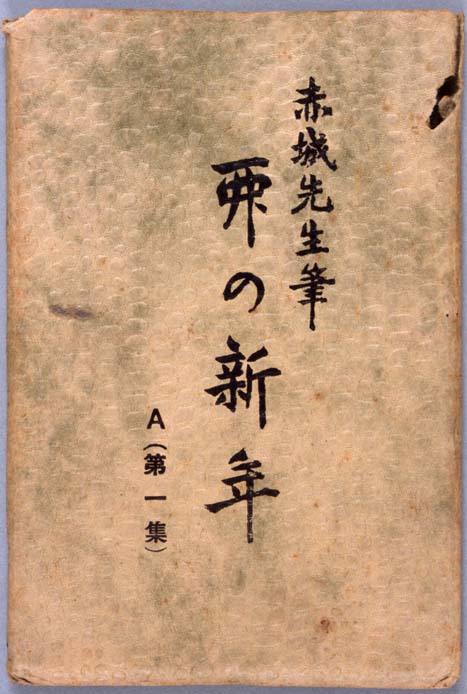 赤城先生筆
丣の新年
A（第一集）